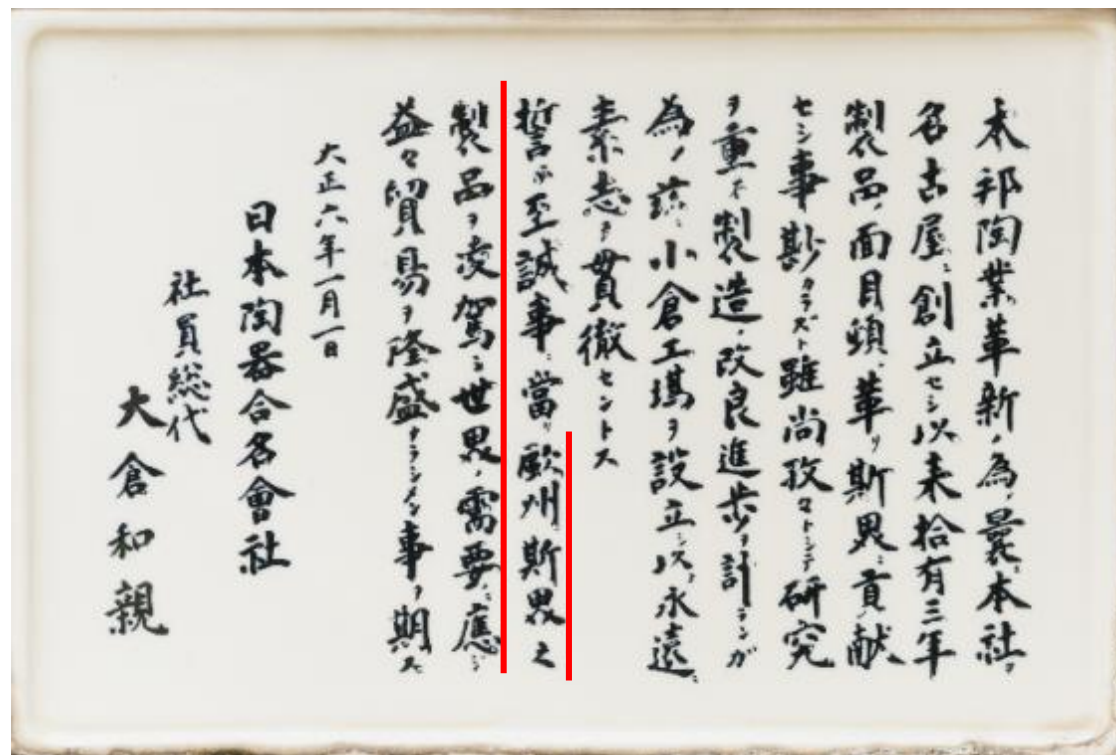 本邦陶業革新ノ為ノ曩ニ本社ヲ
名古屋ニ創立セシ以来拾有三年
製品ノ面目頓ニ革リ斯界ニ貢献
セシ事尠カラズト雖尚孜々トシテ研究
ヲ重ネ製造ノ改良進歩ヲ計ランガ
為ノ茲ニ小倉工場ヲ設立シ以永遠ニ
素志ヲ貫徹セントス
誓ツテ至誠事ニ當リ歐州斯界之
製品ヲ凌駕シ世界ノ需要ニ應ジ
益々貿易ヲ隆盛ナラシメン事ヲ期ス
大正六年一月一日
日本陶器合名會社
社員総代
大倉和親